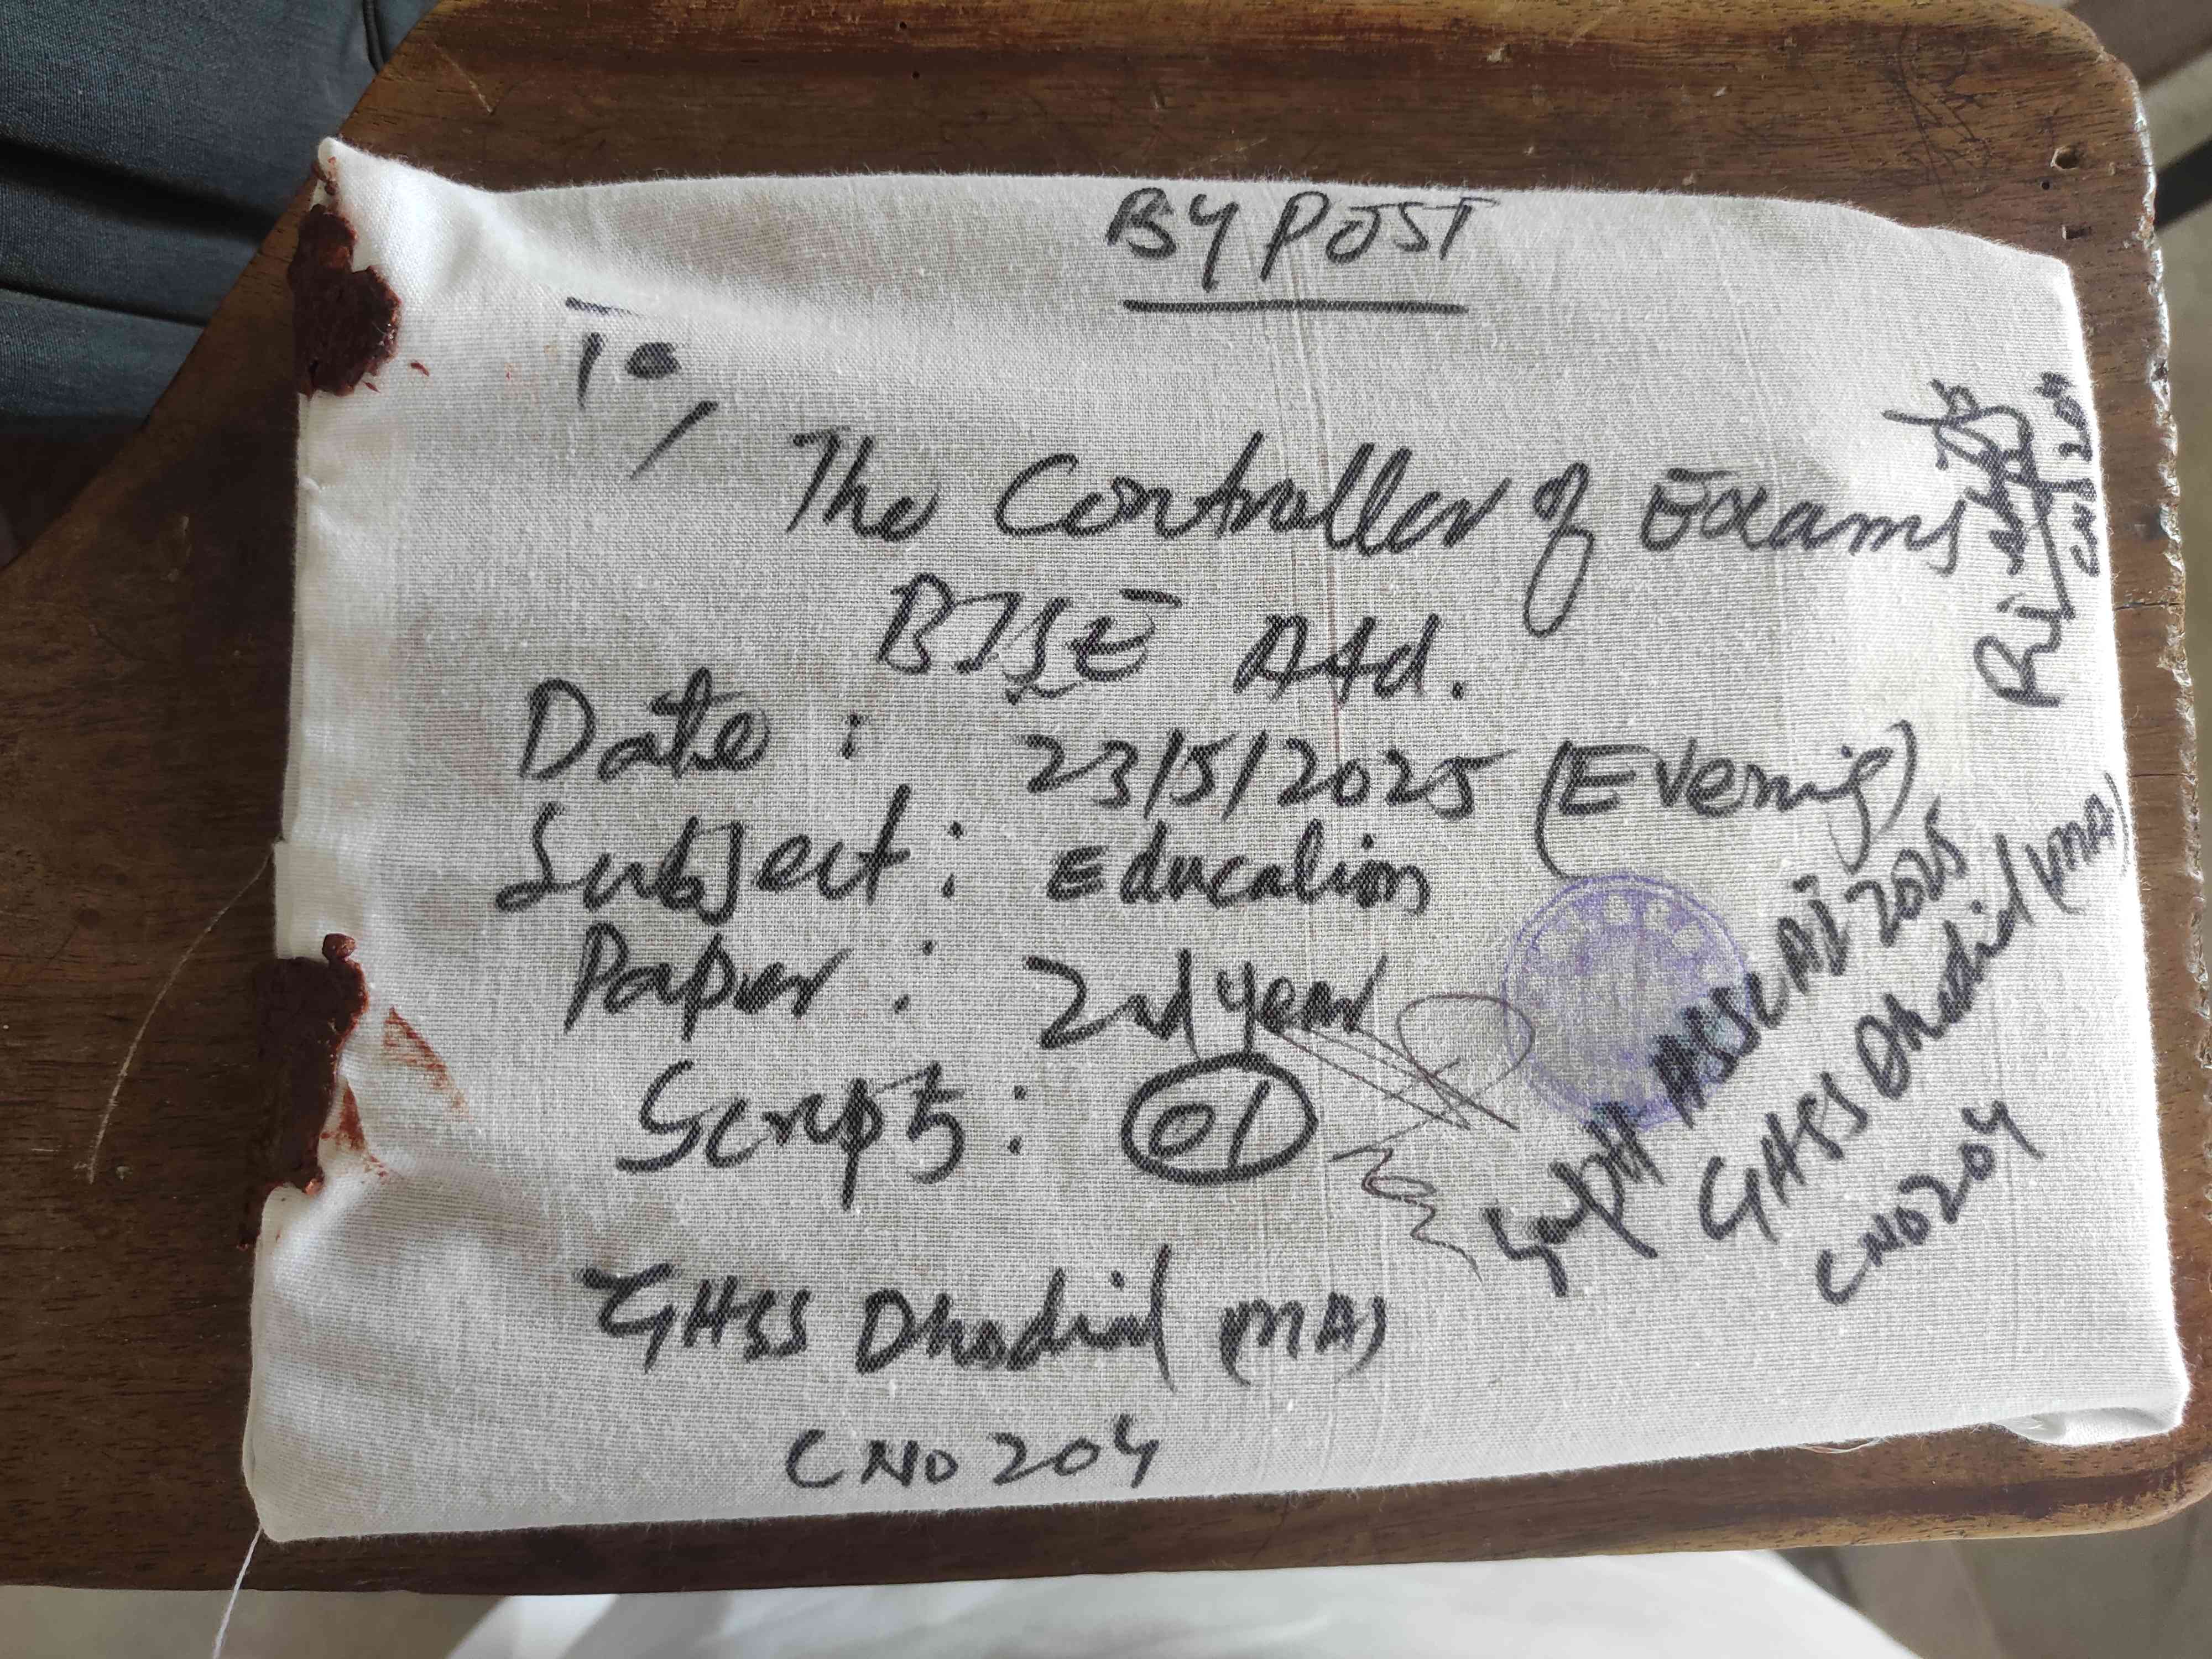 BY POST
To,
The Controller of Exams
BISE Atd.
Date : 23/5/2025 (Evening)
Subject : Education
Paper : 2nd year
Scripts : 01
GHSS Dhodial (MA)
CNO 204
Supdtt HSSC AI 2025
GHSS Dhodial (MA)
CNO 204
CNO 204